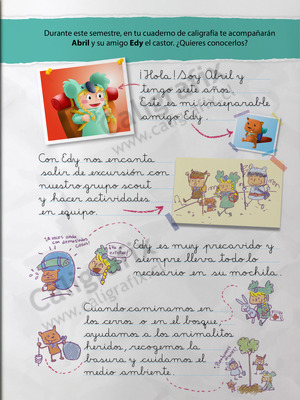 Durante este semestre, en tu cuaderno de caligrafía te acompañarán
Abril y su amigo Edy el castor. ¿Quieres conocerlos?
¡Hola! Soy Abril y
tengo siete años.
Este es mi inseparable
amigo Edy.
Con Edy nos encanta
salir de excursión con
nuestro grupo scout
y hacer actividades
en equipo.
Edy es muy precavido y
siempre lleva todo lo
necesario en su mochila.
Cuando caminamos en
los cerros o en el bosque,
ayudamos a los animalitos
heridos, recogemos la
basura y cuidamos el
medio ambiente.